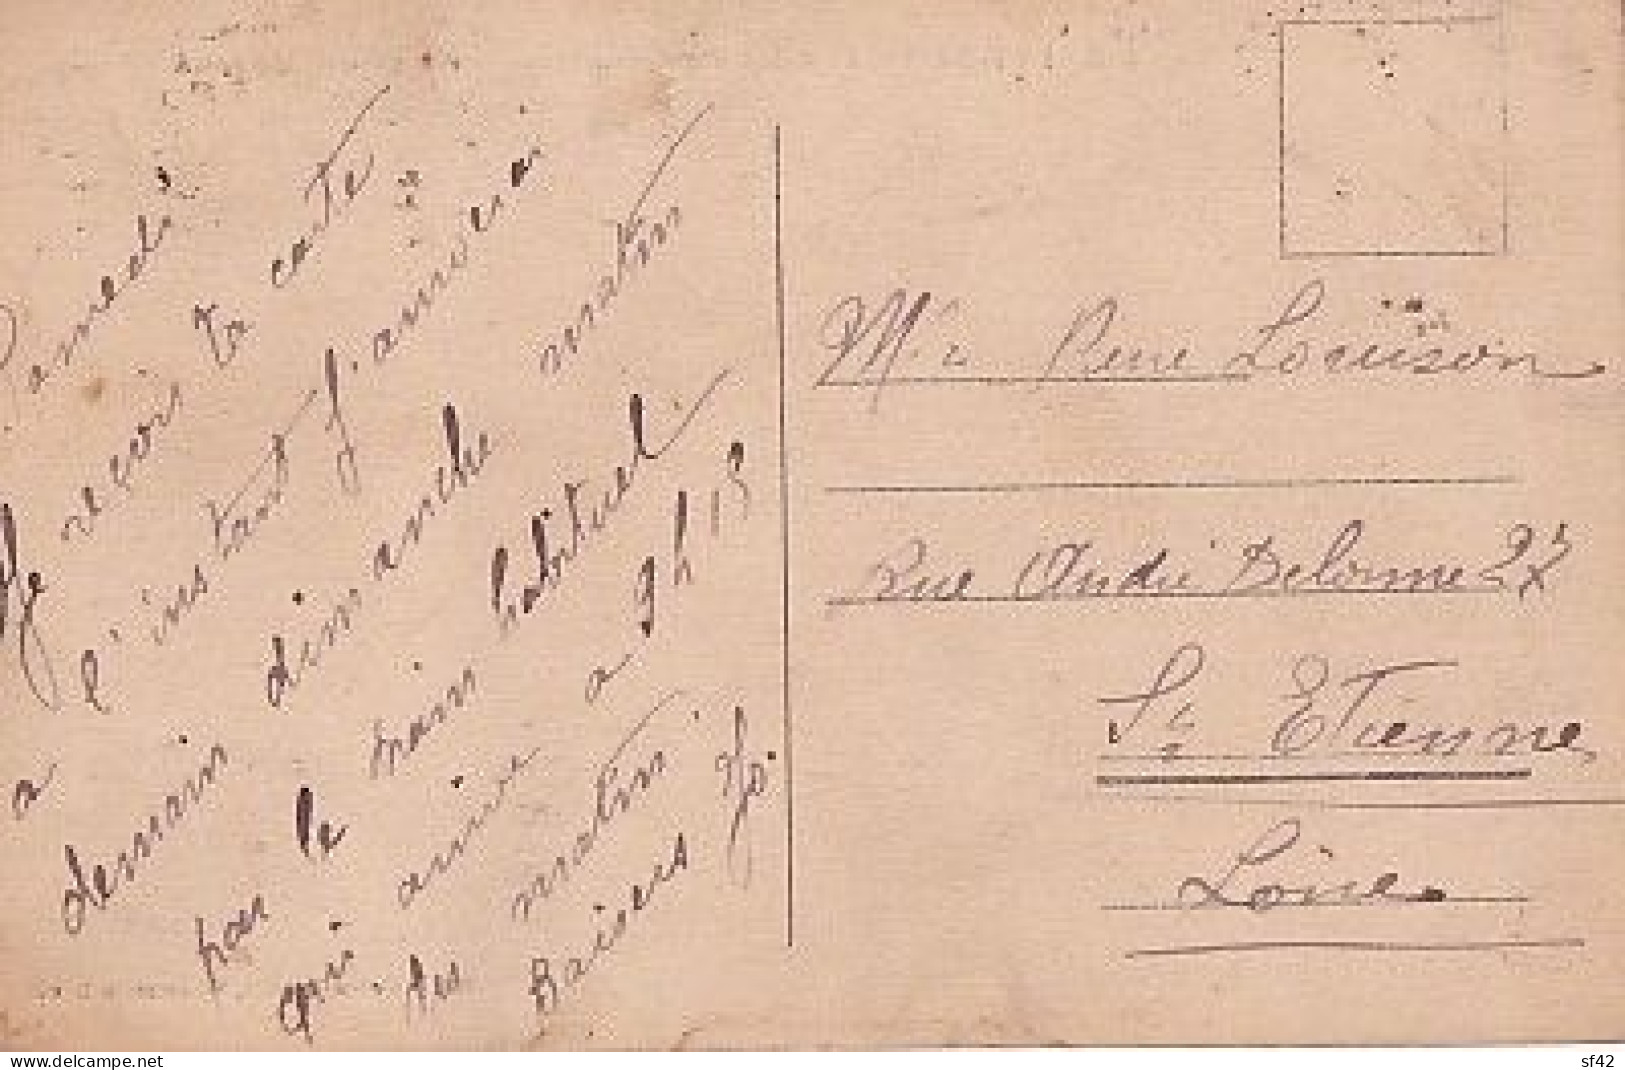 Samedi
Je reçois ta carte
a l'instant j'arriverai
demain dimanche matin
par le train habituel.
qui arrive a 9h 15
du matin
Baisers Jo.
Rene Louison
Rue André Delorme 27
St Etienne
Loire
delcampe.net
sf42